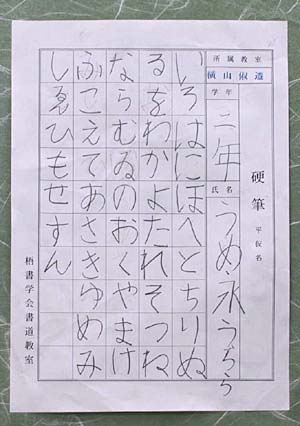 硬筆 平仮名
所属教室
横山俶道
学年
二年
氏名
うめ永うらら
いろはにほへとちりぬ
るをわかよたれそつね
ならむゐのおくやまけ
ふこえてあさきゆめみ
しゑひもせすん
栖書学会書道教室